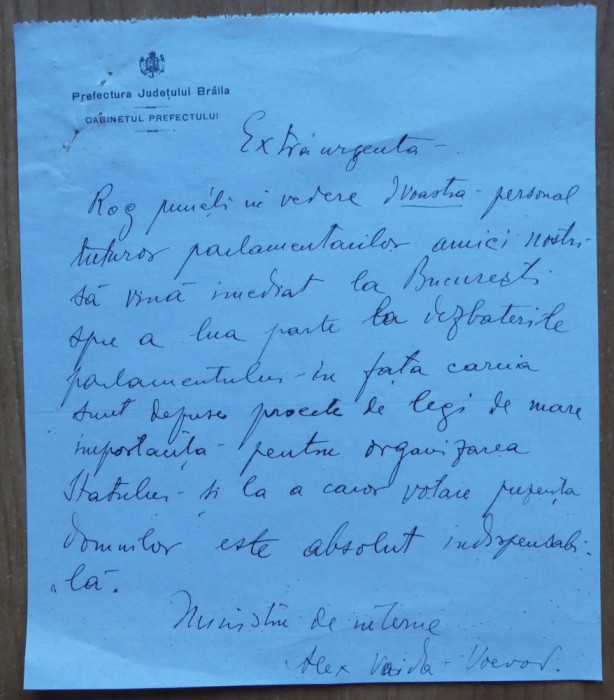 Prefectura Județului Brăila
CABINETUL PREFECTULUI
Extra urgenta -
Rog puneți in vedere dvoastra - personal
tuturor parlamentarilor amici nostri
să vină imediat la București
spre a lua parte la dezbaterile
parlamentului - in fața caruia
sunt depuse proecte de legi de mare
importanța - pentru organizarea
Statului - și la a caror votare prezența
domnilor este absolut indispensabi-
lă.
Ministru de interne
Alex Vaida - Voevod.